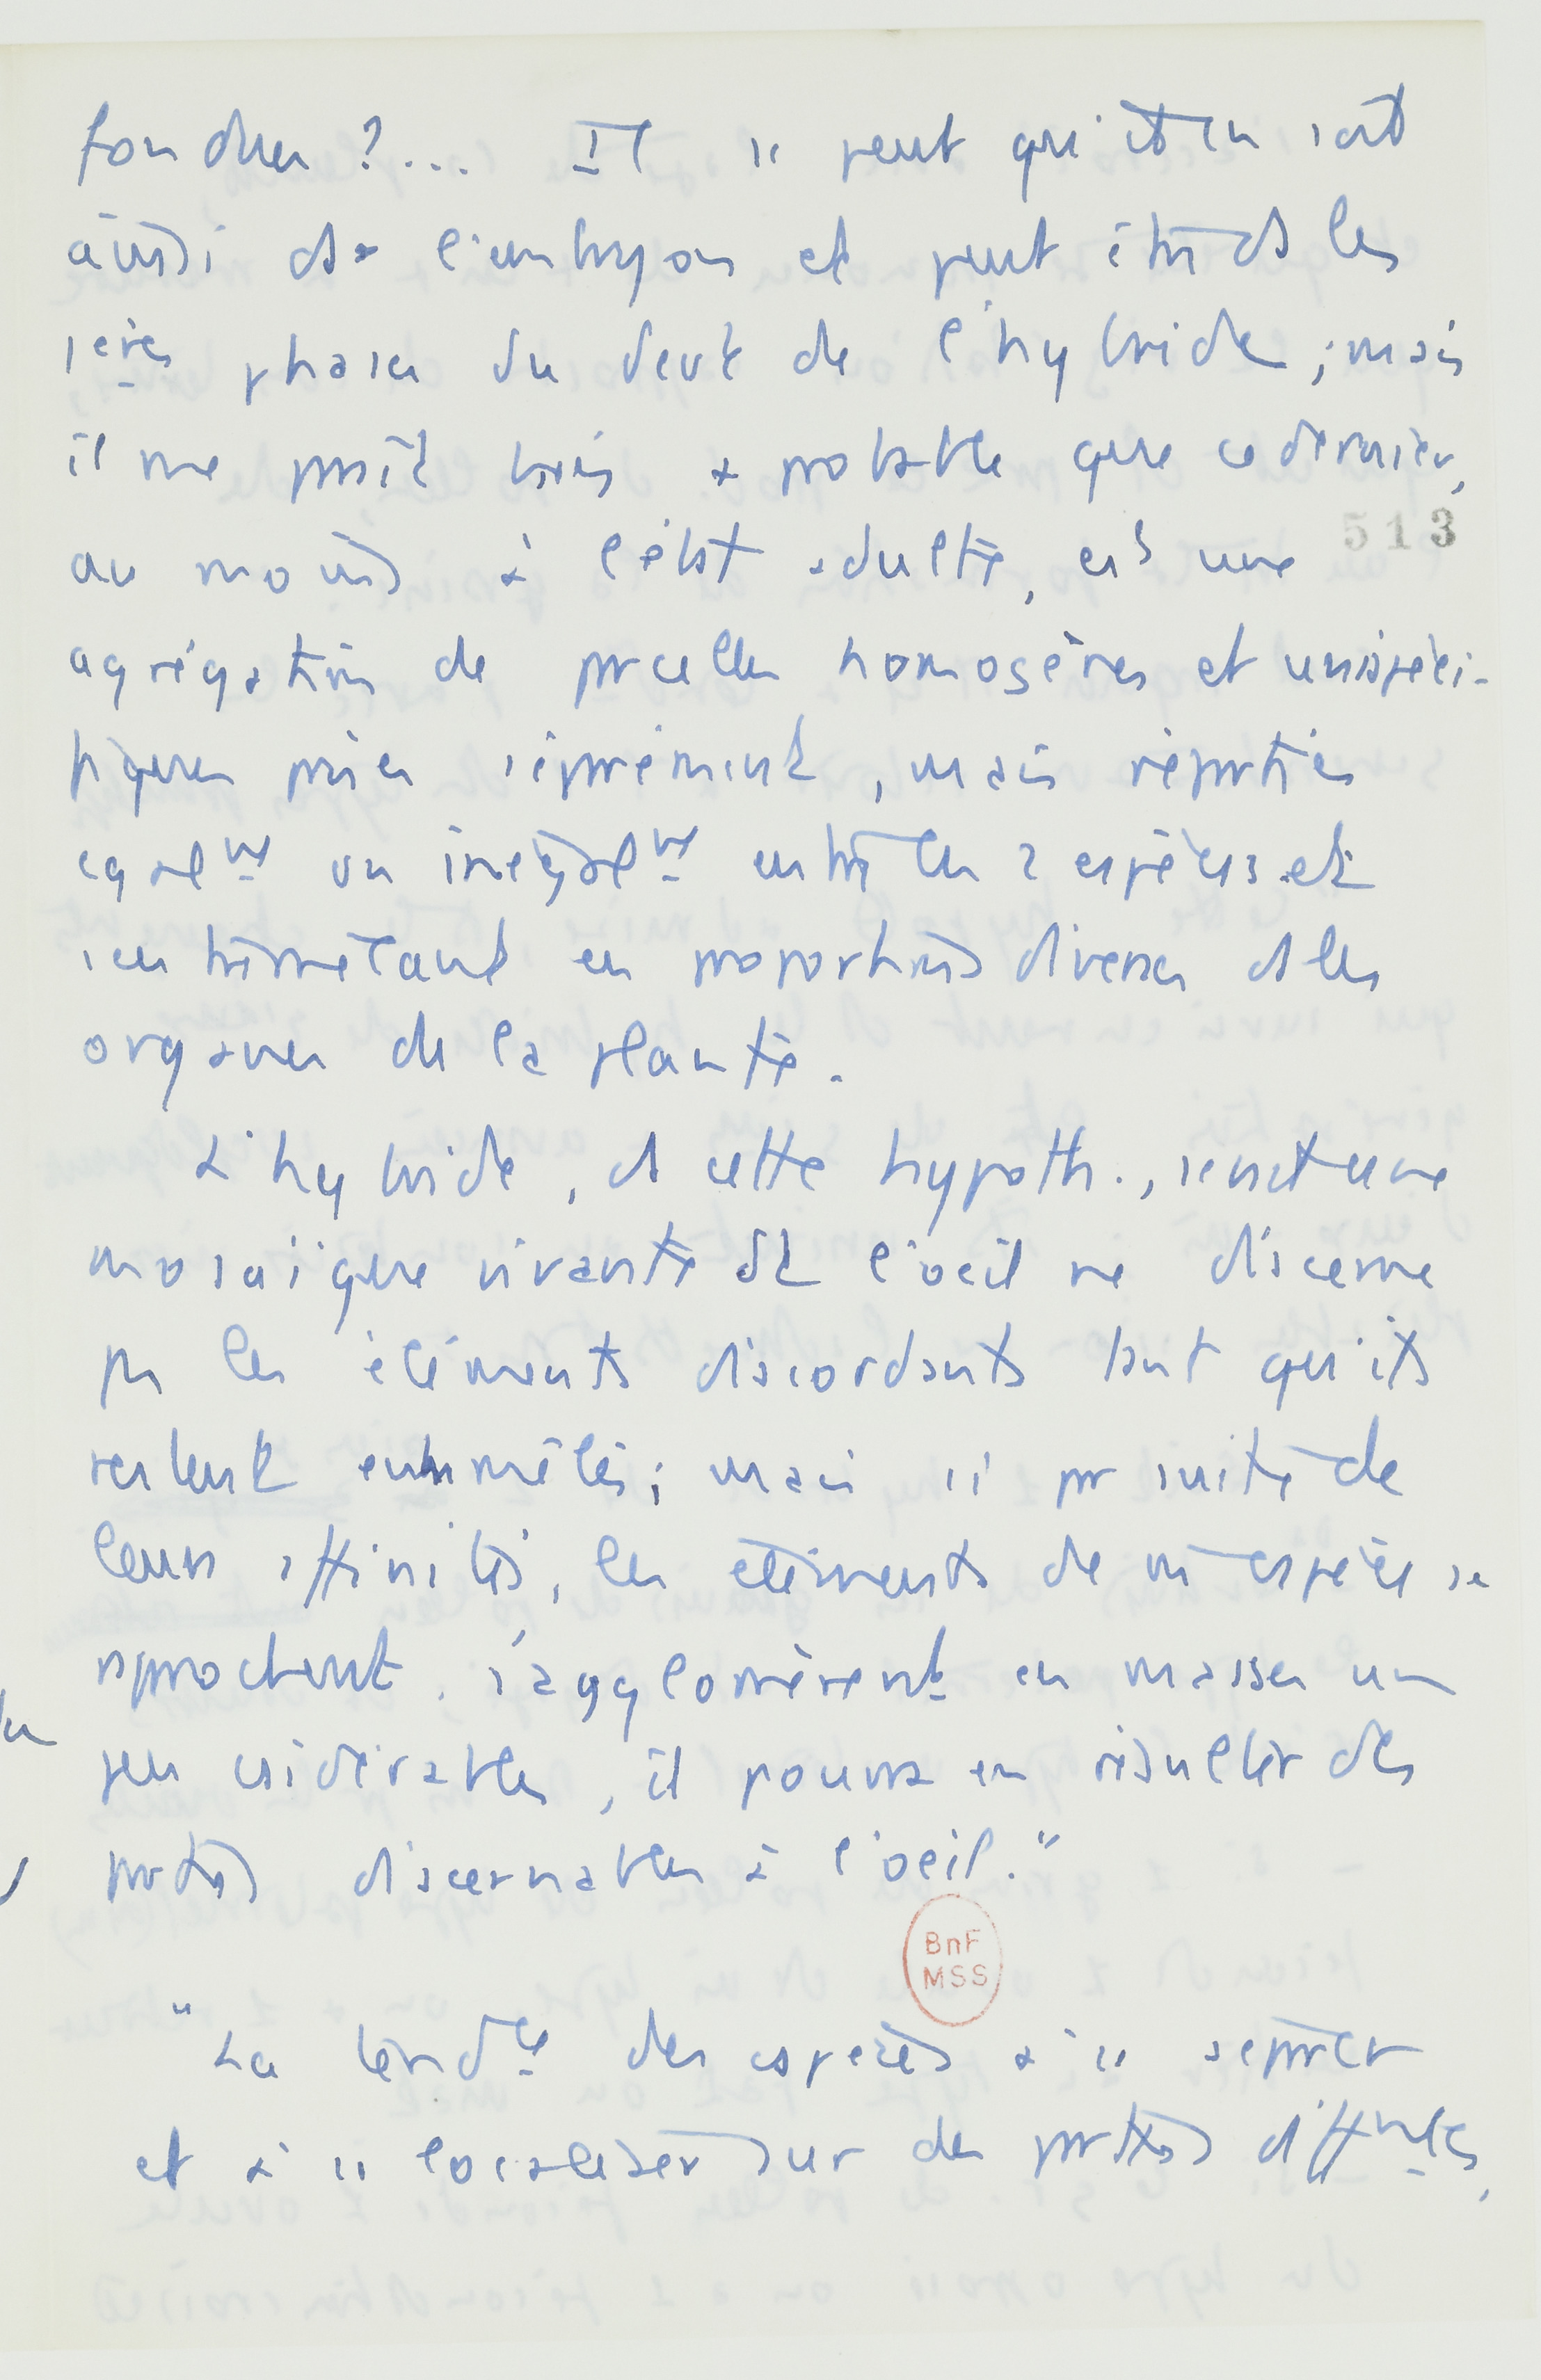 fondues ?... Il se peut qu'il en soit
ainsi ds l'embryon et peut être ds les
1ères phases du devt de l'hybride ; mais
il me paraît bien + probable que ce dernier,
au moins à l'état adulte, est une
513
agrégation de parcelles homogènes et unispéci-
fiques prises séparément, mais réparties
égalemt ou inégalemt entre les 2 espèces et
s'entremêlant en proportions diverses ds les
organes de la plante.
L'hybride, ds cette hypoth., serait une
mosaïque vivante dt l'oeil ne discerne
pas les éléments discordants tant qu'ils
restent entremêlés ; mais si par suite de
leurs affinités, les éléments de m espèce se
rapprochent, s'agglomèrent en masses un
peu csidérables, il pourra en résulter des
parties discernables à l'oeil."
BnF
MSS
"La tendce des espèces à se séparer
et à se localiser sur des parties difftes,